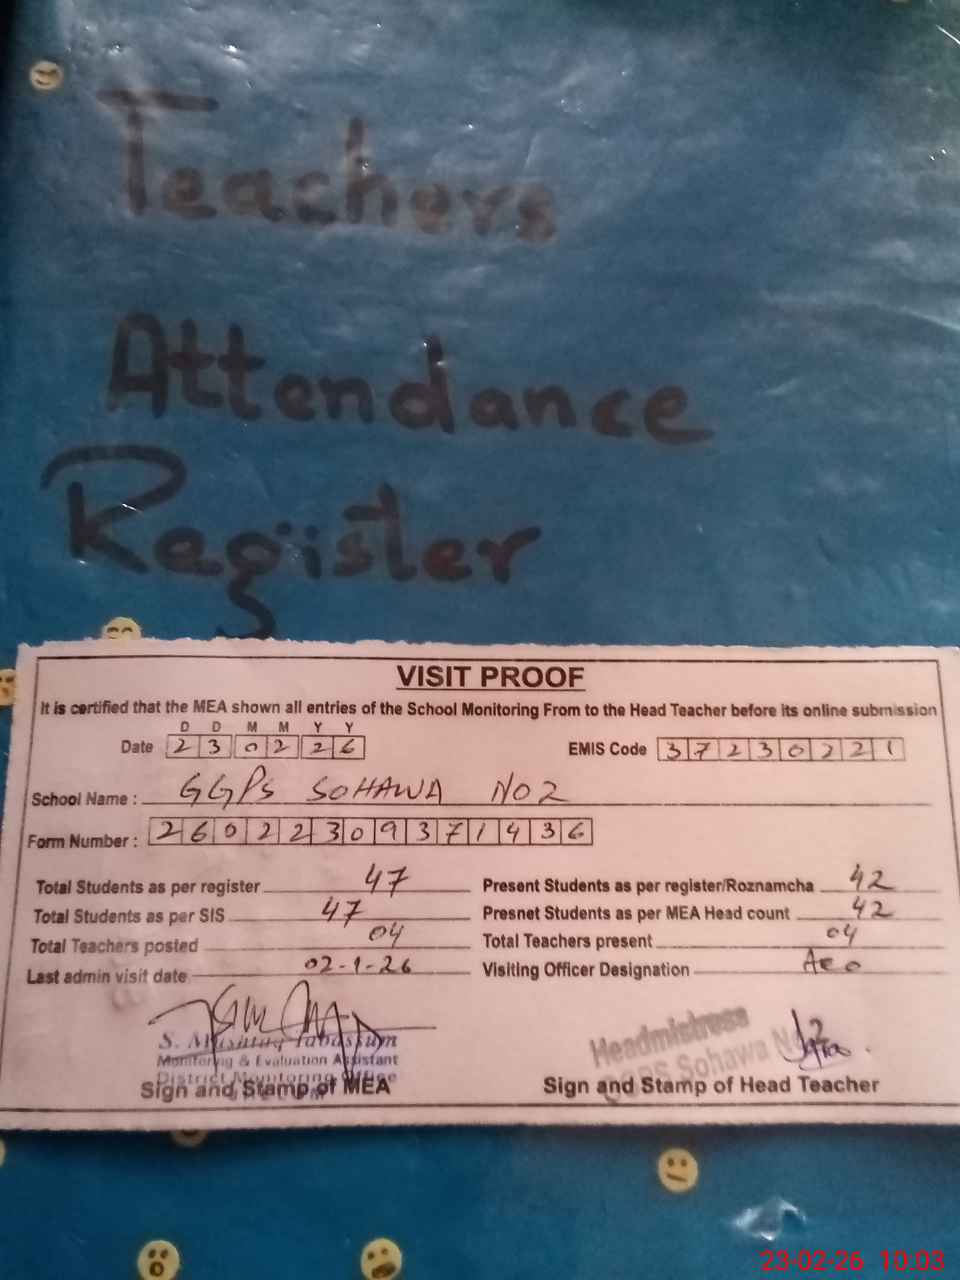 Teachers
Attendance
Register
VISIT PROOF
It is certified that the MEA shown all entries of the School Monitoring From to the Head Teacher before its online submission
D D M M Y Y
Date 2 3 0 2 2 6 EMIS Code 3 7 2 3 0 2 2 1
School Name : GGPS SOHAWA NO 2
Form Number : 2 6 0 2 2 3 0 9 3 7 1 4 3 6
Total Students as per register 47 Present Students as per register/Roznamcha 42
Total Students as per SIS 47 Presnet Students as per MEA Head count 42
Total Teachers posted 04 Total Teachers present 04
Last admin visit date 02-1-26 Visiting Officer Designation Aeo
S. Tabassum
Monitoring & Evaluation Assistant
District Monitoring Office
Sign and Stamp of MEA
Headmistress
GGPS Sohawa No 2
Sign and Stamp of Head Teacher
23-02-26 10:03